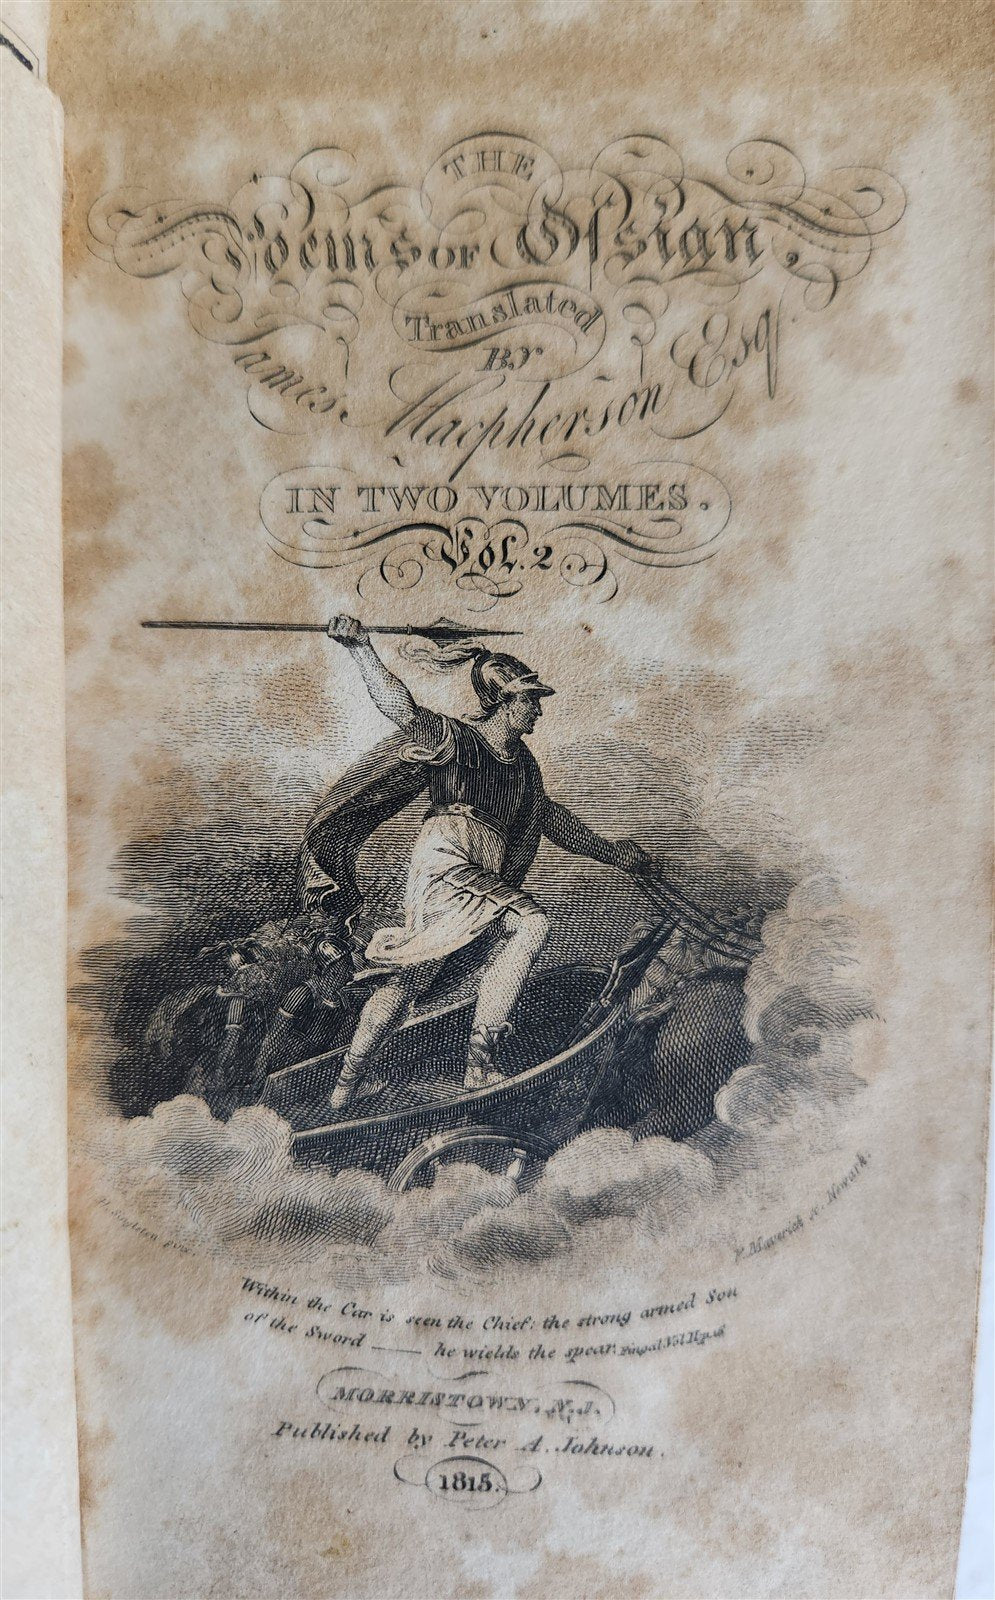 THE
Poems OF Oſsian,
Translated
BY
James Macpherson Esq.
IN TWO VOLUMES.
Vol. 2.
P. Maverick Sc. Newark.
Within the Car is seen the Chief: the strong armed Son
of the Sword —— he wields the spear. Fingal Vol II p.
MORRISTOWN, N.J.
Published by Peter A. Johnson.
1815.